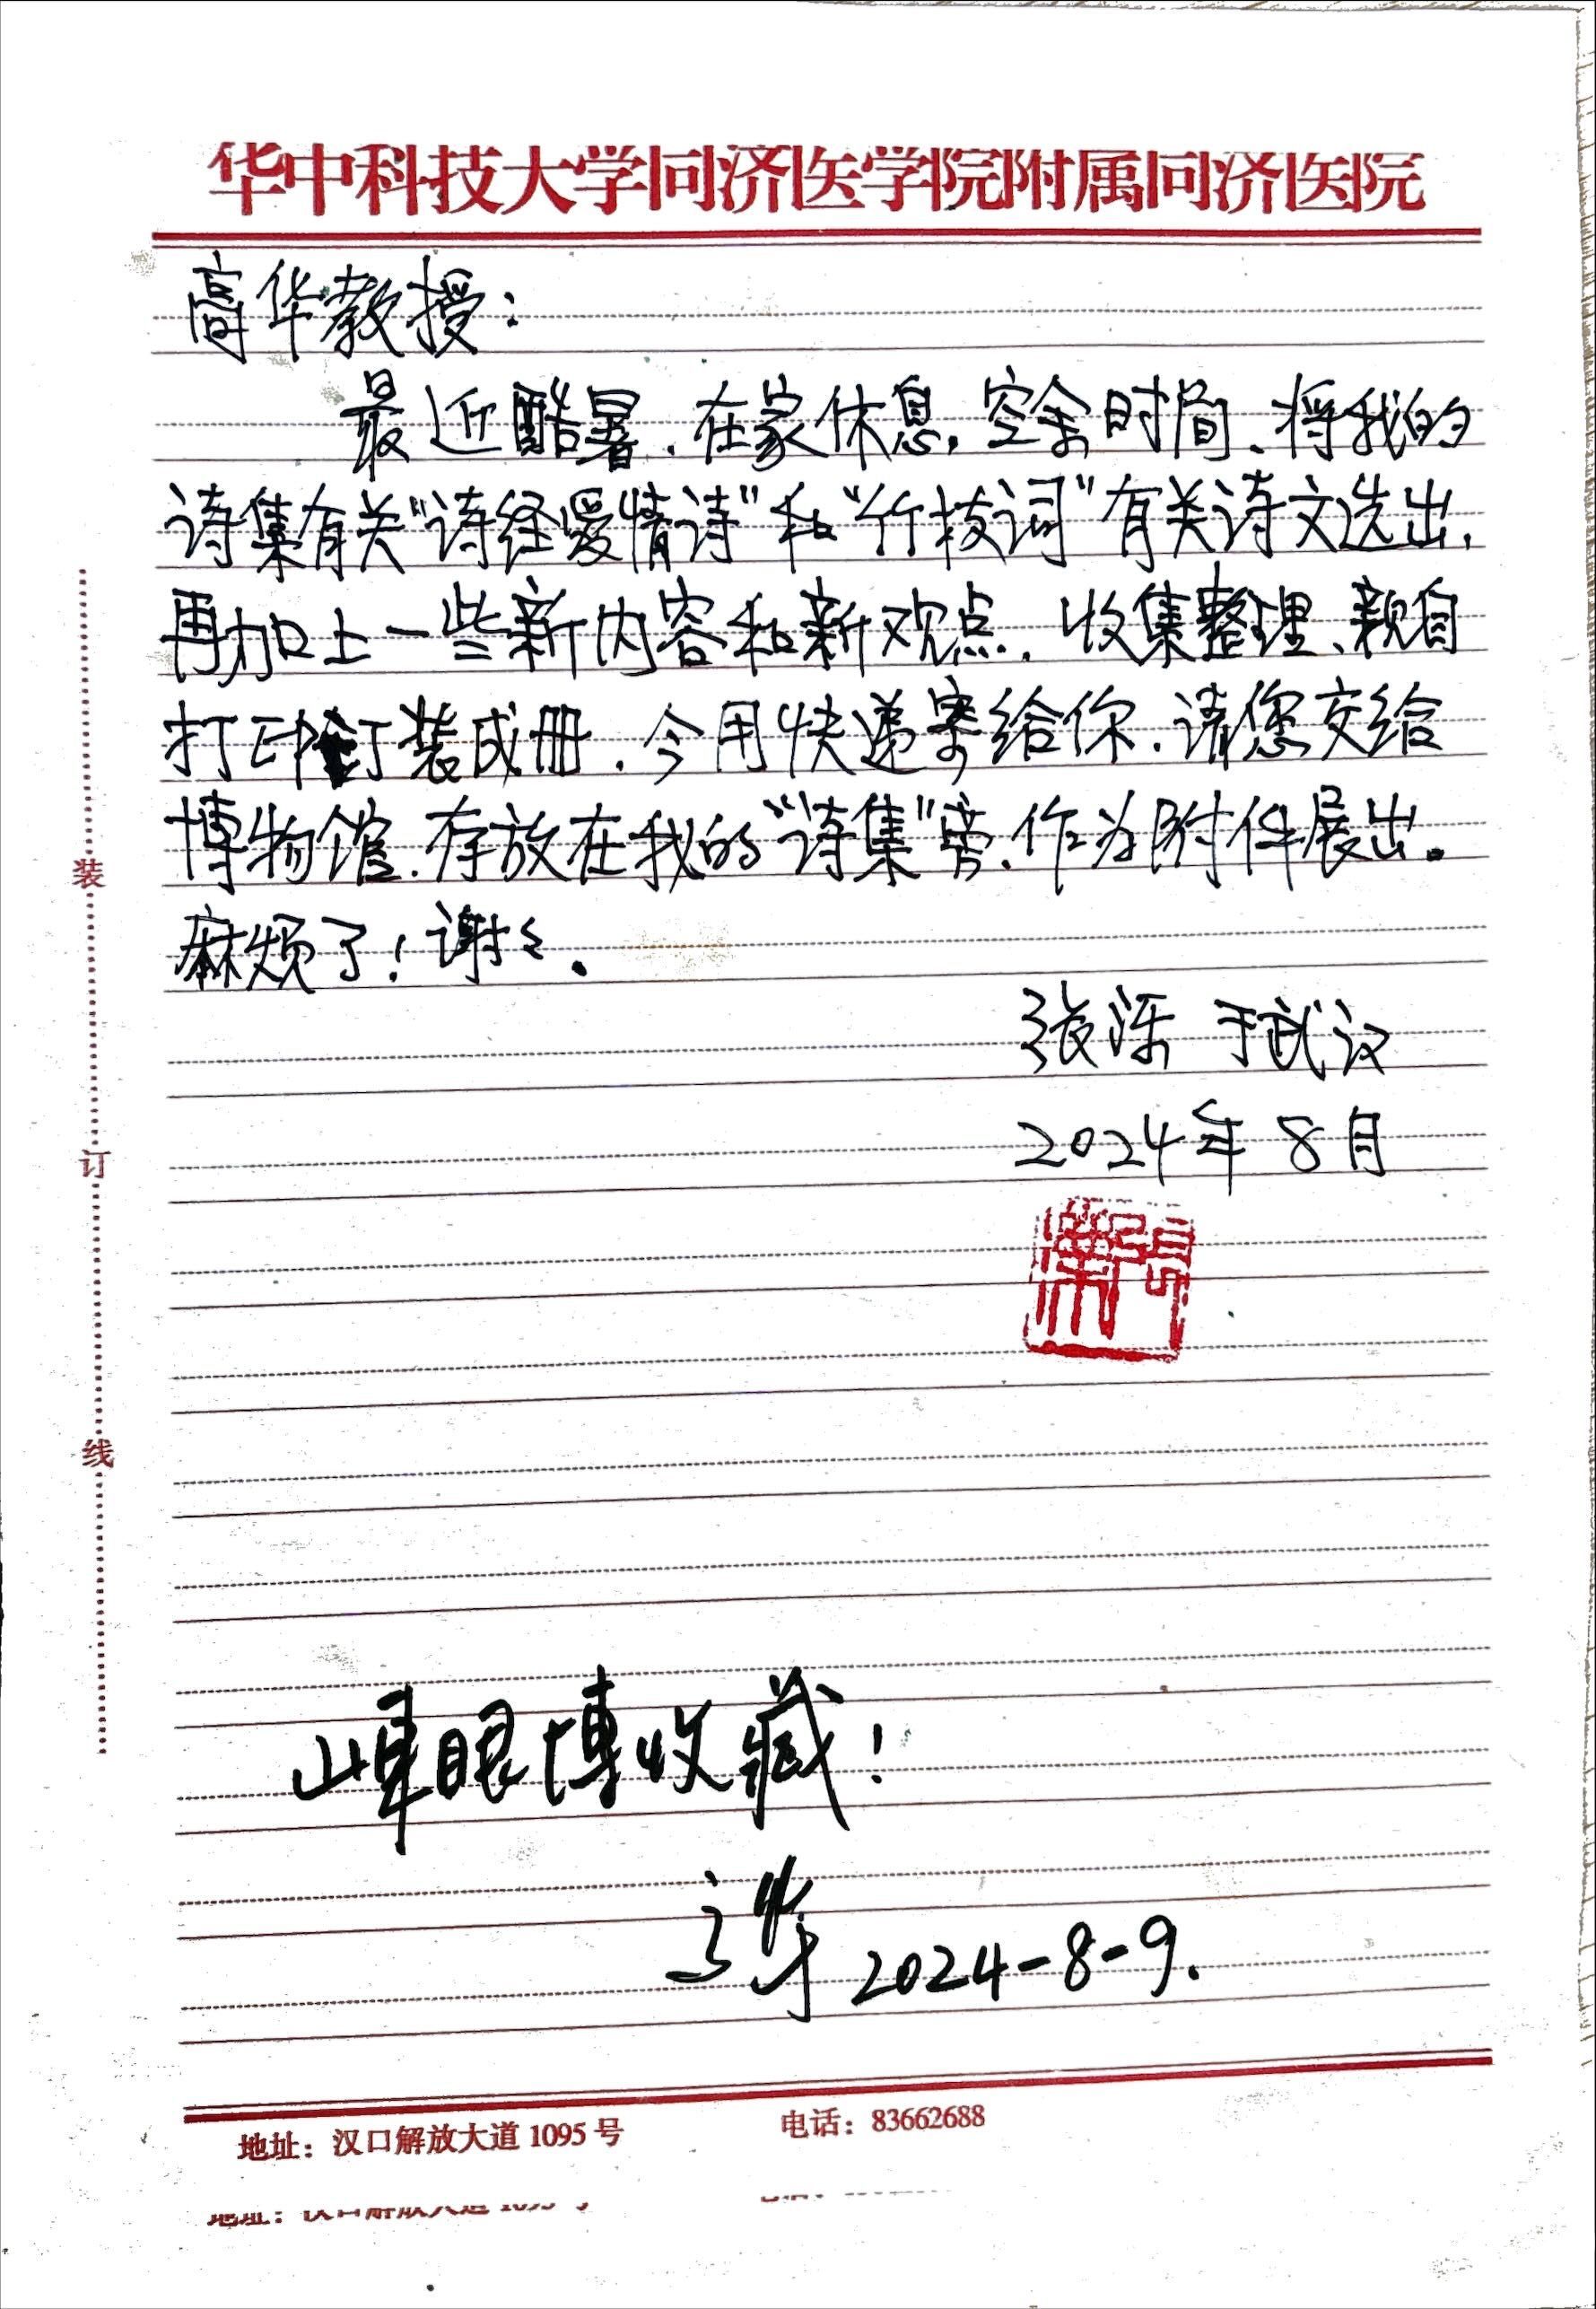 华中科技大学同济医学院附属同济医院
高华教授：
最近酷暑，在家休息，空余时间，将我的
诗集有关“诗经爱情诗”和“竹枝词”有关诗文选出，
再加上一些新内容和新观点，收集整理、亲自
打印订装成册，今用快递寄给你，请您交给
博物馆，存放在我的“诗集”旁，作为附件展出。
麻烦了！谢々。
张泺 于武汉
2024年8月
装
订
线
眼博收藏！
2024-8-9.
地址：汉口解放大道1095号 电话：83662688